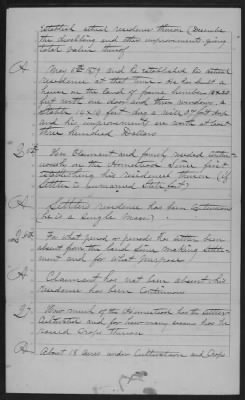 establish actual residence thereon (Describe
the dwelling and other improvements, giving
total value thereof
A May 6th 1879 and he established his actual
residence at that time. He has built a
house on the land of frame lumber 14 x 20
feet with one door and three windows, a
stable 14 x 16 feet - dug a well 37 feet deep
and his improvements are worth at least
three hundred Dollars
Q 5th Has Claimant and family resided contin-
uously on the homestead since first
establishing his residence thereon (If
Settler is unmarried state fact)
A Settlers residence has been continuous
(he is a single man)
Q 6th For what period or periods has settler been
absent from the land since making settle-
ment and for what purpose
A Claimant has not been absent his
residence has been continuous
Q 7 How much of the Homestead has the settler
Cultivated and for how many seasons has he
raised Crops thereon
A About 18 acres under Cultivation and Crops